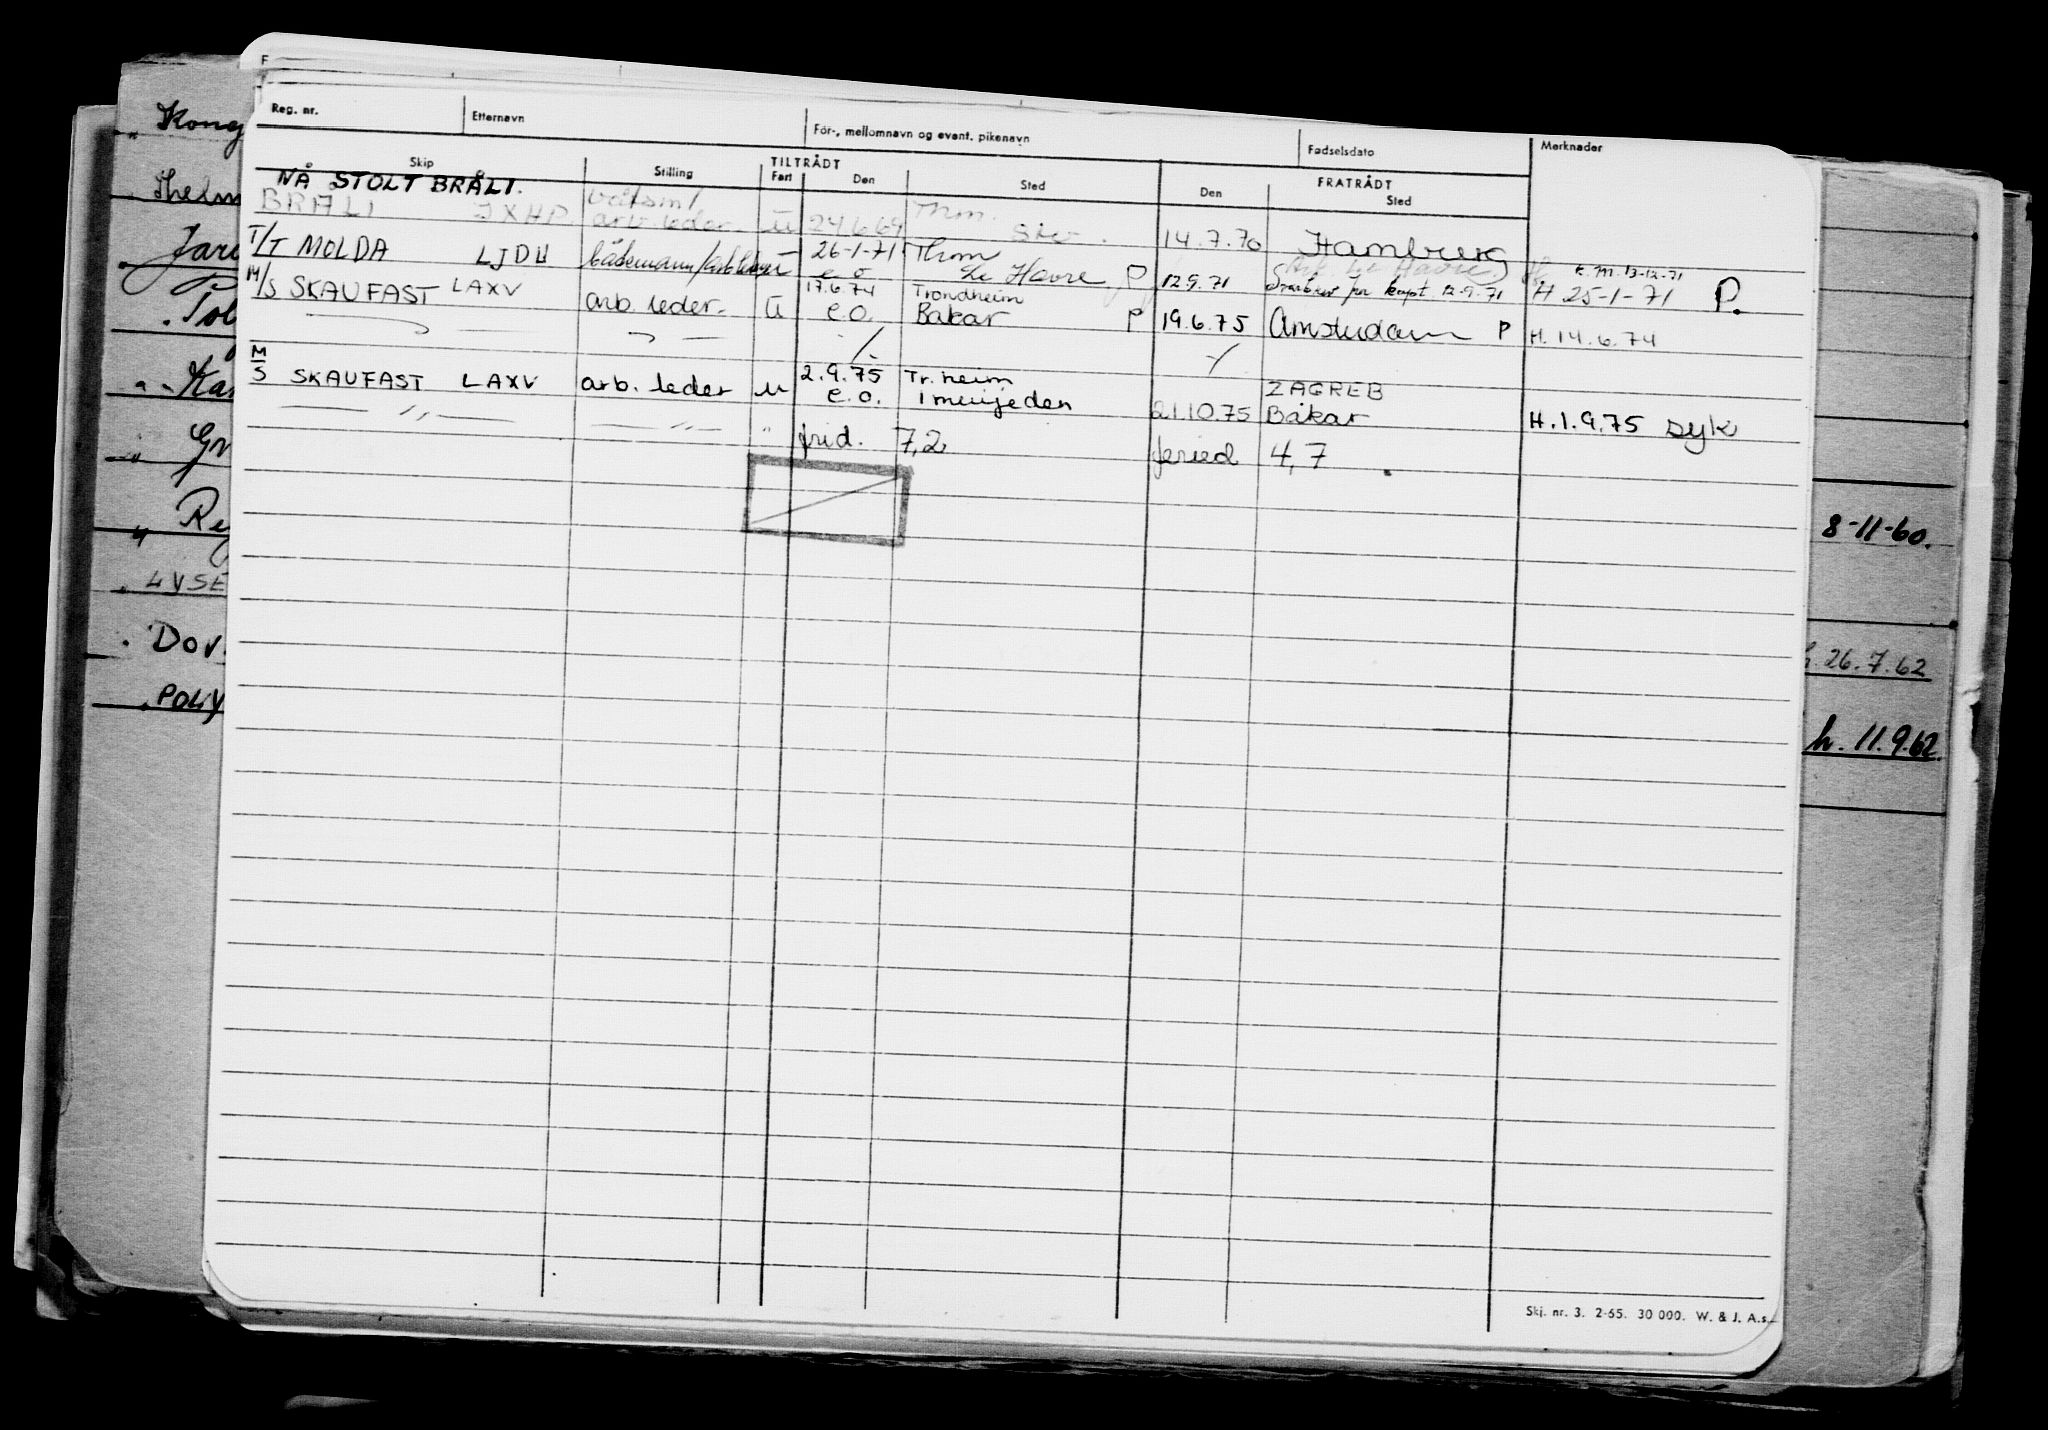 Kong
Reg. nr. Etternavn For-, mellomnavn og event. pikenavn Fødselsdato Merknader
Skip Stilling TILTRÅDT FRATRÅDT
Fart Den Sted Den Sted
NÅ STOLT BRÅLI.
BRÅLI JXHP. båtsm/ Thm.
arb. leder. u 24.6.69 14.7.70 Hamburg
T/T MOLDA LJDU båtsmann/arb leder u 26-1-71 Thm
e o Le Havre P 12.9.71 k.m. 13-12-71
H 25-1-71 P.
M/S SKAUFAST LAXV arb. leder. u 17.6.74 Trondheim
e.o. Bakar P 19.6.75 Amsterdam P H. 14.6.74
M/S SKAUFAST LAXV arb. leder u 2.9.75 Tr.heim ZAGREB
— ,, — — ,, — " e.o. Imuijeden 21.10.75 Båkar H. 1.9.75 syk
frid. 7,2 feried 4,7
8-11-60.
LYSE
Dov
26.7.62
POLY
h. 11.9.62
Skj. nr. 3. 2-65. 30 000. W. & J. A.s.